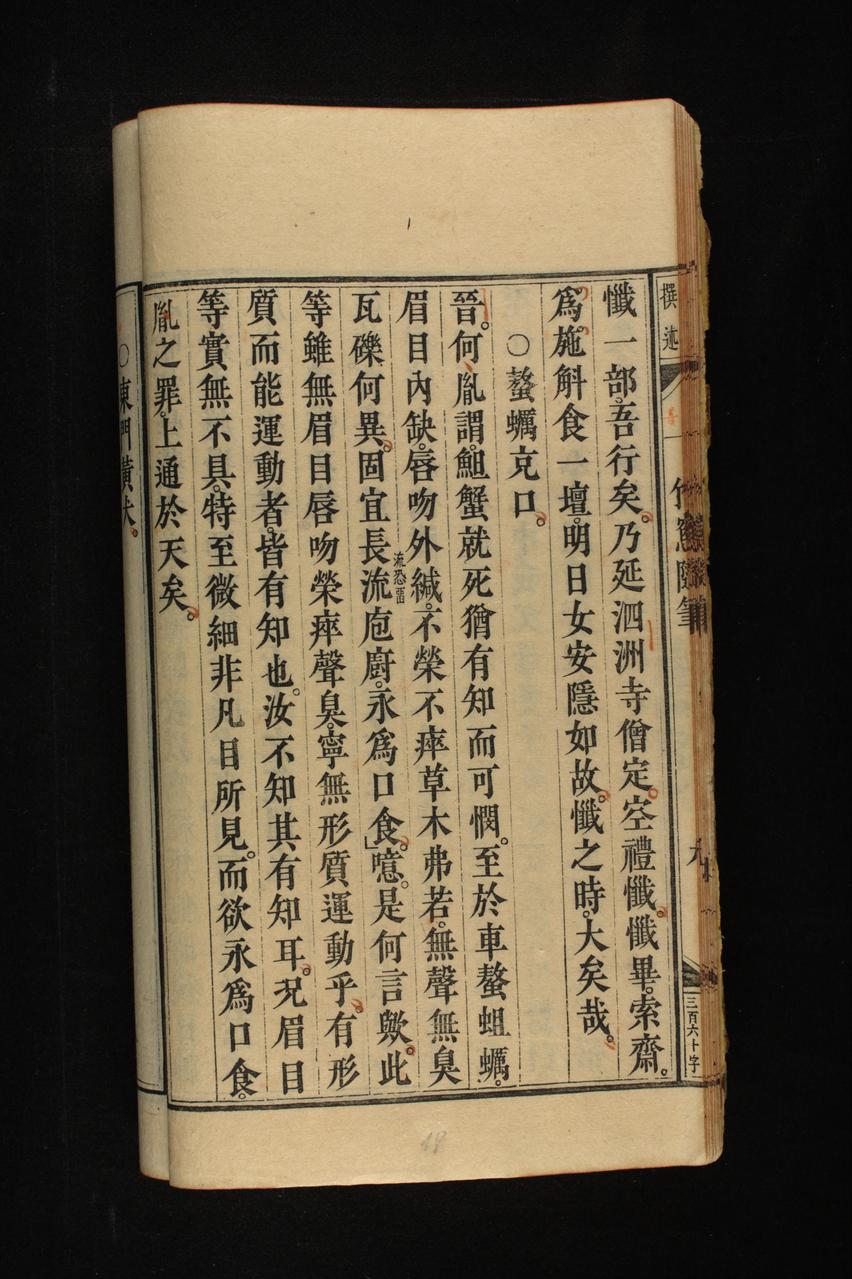 撰述
竹窻隨筆
三百六十字
懺一部。吾行矣。乃延泗洲寺僧定空禮懺。懺畢。索齋。
爲施斛食一壇。明日女安隱如故。懺之時。大矣哉。
○螯蠣克口。
晉。何胤謂。䱇蟹就死猶有知而可憫。至於車螯蛆蠣。
眉目內缺。唇吻外緘。不榮不瘁草木弗若。無聲無臭
瓦礫何異。固宜長流庖廚。永爲口食。噫。是何言歟。此
流恐畱
等雖無眉目。唇吻榮瘁聲臭。寧無形質運動乎。有形
質而能運動者。皆有知也。汝不知其有知耳。況眉目
等實無不具。特至微細非凡目所見。而欲永爲口食。
胤之罪。上通於天矣。
○東門黃犬。